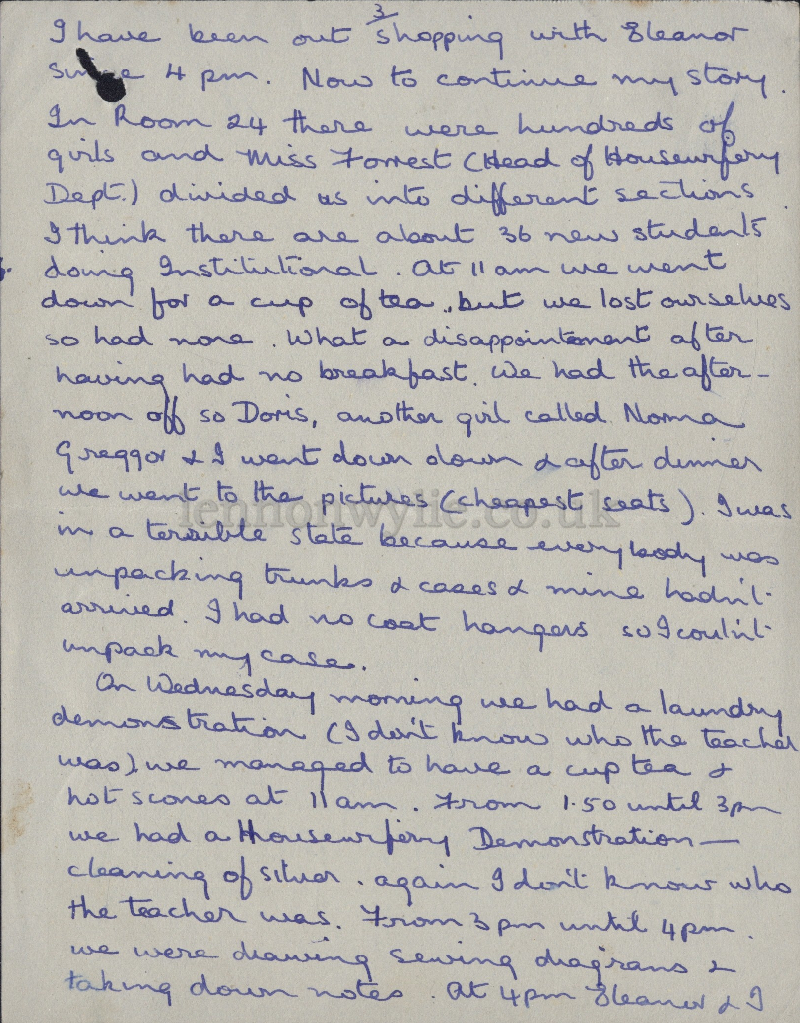 3
I have been out shopping with Eleanor
since 4 pm. Now to continue my story.
In Room 24 there were hundreds of
girls and Miss Forrest (Head of Housewifery
Dept.) divided us into different sections
I think there are about 36 new students
doing Institutional. At 11 am we went
down for a cup of tea, but we lost ourselves
so had none. What a disappointment after
having had no breakfast. We had the after-
noon off so Doris, another girl called Norma
Greggor & I went down down & after dinner
we went to the pictures (cheapest seats). I was
lennonwylie.co.uk
in a terrible state because everybody was
unpacking trunks & cases & mine hadn't
arrived. I had no coat hangers so I couln't
unpack my case.
On Wednesday morning we had a laundry
demonstration (I don't know who the teacher
was). we managed to have a cup tea &
hot scones at 11 am. From 1.50 until 3pm
we had a Housewifery Demonstration—
cleaning of silver. again I don't know who
the teacher was. From 3 pm until 4 pm.
we were drawing sewing diagrans &
taking down notes. At 4 pm Eleanor & I